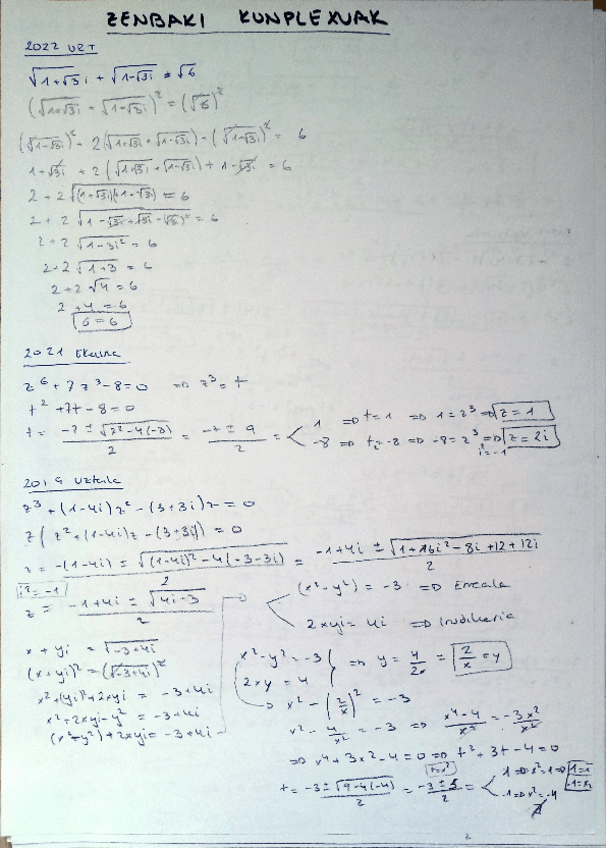 ZENBAKI KONPLEXUAK
2022 UZT
√1+√3i + √1-√3i = √6
(√1+√3i + √1-√3i)² = (√6)²
2+2√(1+√3i)(1-√3i) = 6
2+2√1-3i² = 6
2+2√1+3 = 6
2+2√4 = 6
2+4=6
6=6
2021 Ekaina
z⁶+7z³-8=0 => z³=t
t²+7t-8=0
t= -7±√7²-4(-8) / 2 = -7±9 / 2 = < 1 => t=1 => 1=z³ => z=1
-8 => t=-8 => -8=z³ => z=2i
i²=-1
2019 Uztaila
z³+(1-4i)z²-(3+3i)z=0
z(z²+(1-4i)z-(3+3i))=0
z= -(1-4i)±√(1-4i)²-4(-3-3i) / 2 = -1+4i±√1+16i²-8i+12+12i / 2
i²=-1
z= -1+4i±√4i-3 / 2
(x²-y²)=-3 => Erreala
2xyi=4i => Irudikaria
x+yi = √-3+4i
(x+yi)²=(√-3+4i)²
x²+(yi)²+2xyi = -3+4i
x²+2xyi-y² = -3+4i
(x²-y²)+2xyi = -3+4i
x²-y²=-3
2xy=4 } => y= 4/2x = 2/x = y
x²-(2/x)²=-3
x²-4/x²=-3 => x⁴-4/x² = -3x²/x²
=> x⁴+3x²-4=0 => t²+3t-4=0
t=x²
t= -3±√9-4(-4) / 2 = -3±5 / 2 = < 1 => x²=1 =>